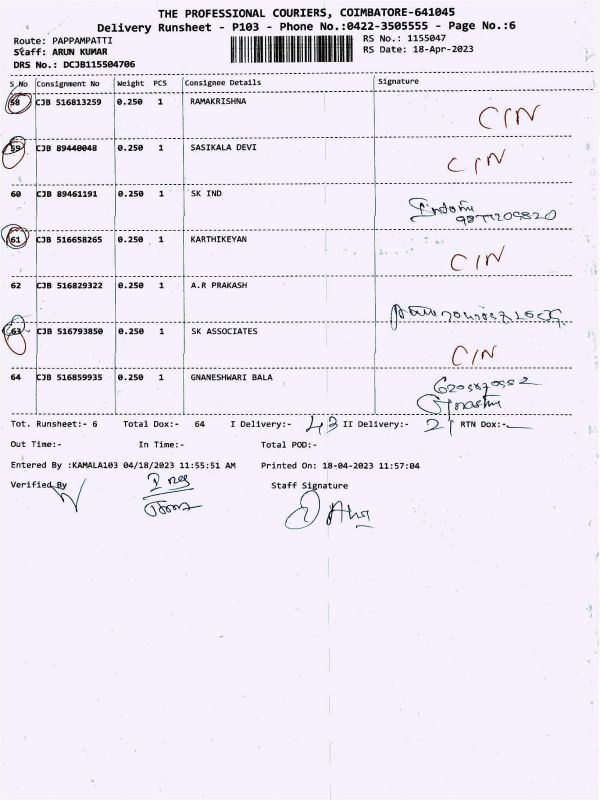 THE PROFESSIONAL COURIERS, COIMBATORE-641045
Delivery Runsheet - P103 - Phone No.:0422-3505555 - Page No.:6
Route: PAPPAMPATTI RS No.: 1155047
Staff: ARUN KUMAR RS Date: 18-Apr-2023
DRS No.: DCJB115504706
S No Consignment No Weight PCS Consignee Details Signature
58 CJB 516813259 0.250 1 RAMAKRISHNA C/N
59 CJB 89440048 0.250 1 SASIKALA DEVI C/N
60 CJB 89461191 0.250 1 SK IND
61 CJB 516658265 0.250 1 KARTHIKEYAN C/N
62 CJB 516829322 0.250 1 A.R PRAKASH
63 CJB 516793850 0.250 1 SK ASSOCIATES C/N
64 CJB 516859935 0.250 1 GNANESHWARI BALA
Tot. Runsheet:- 6 Total Dox:- 64 I Delivery:- 43 II Delivery:- 21 RTN Dox:-
Out Time:- In Time:- Total POD:-
Entered By :KAMALA103 04/18/2023 11:55:51 AM Printed On: 18-04-2023 11:57:04
Verified By Staff Signature